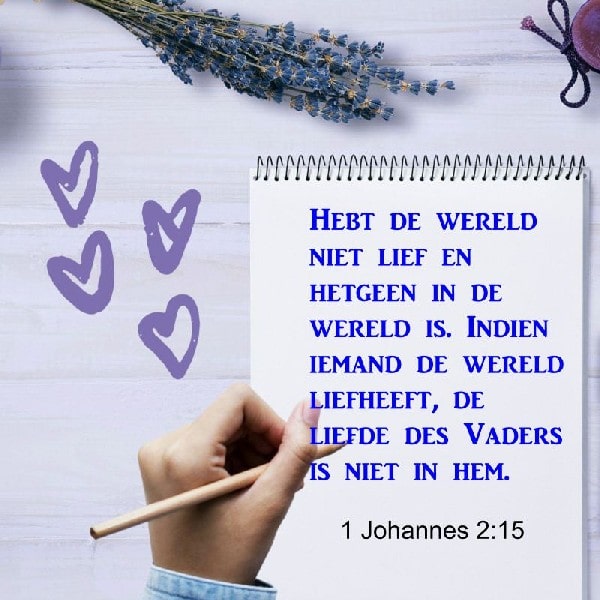 Hebt de wereld
niet lief en
hetgeen in de
wereld is. Indien
iemand de wereld
liefheeft, de
liefde des Vaders
is niet in hem.
1 Johannes 2:15